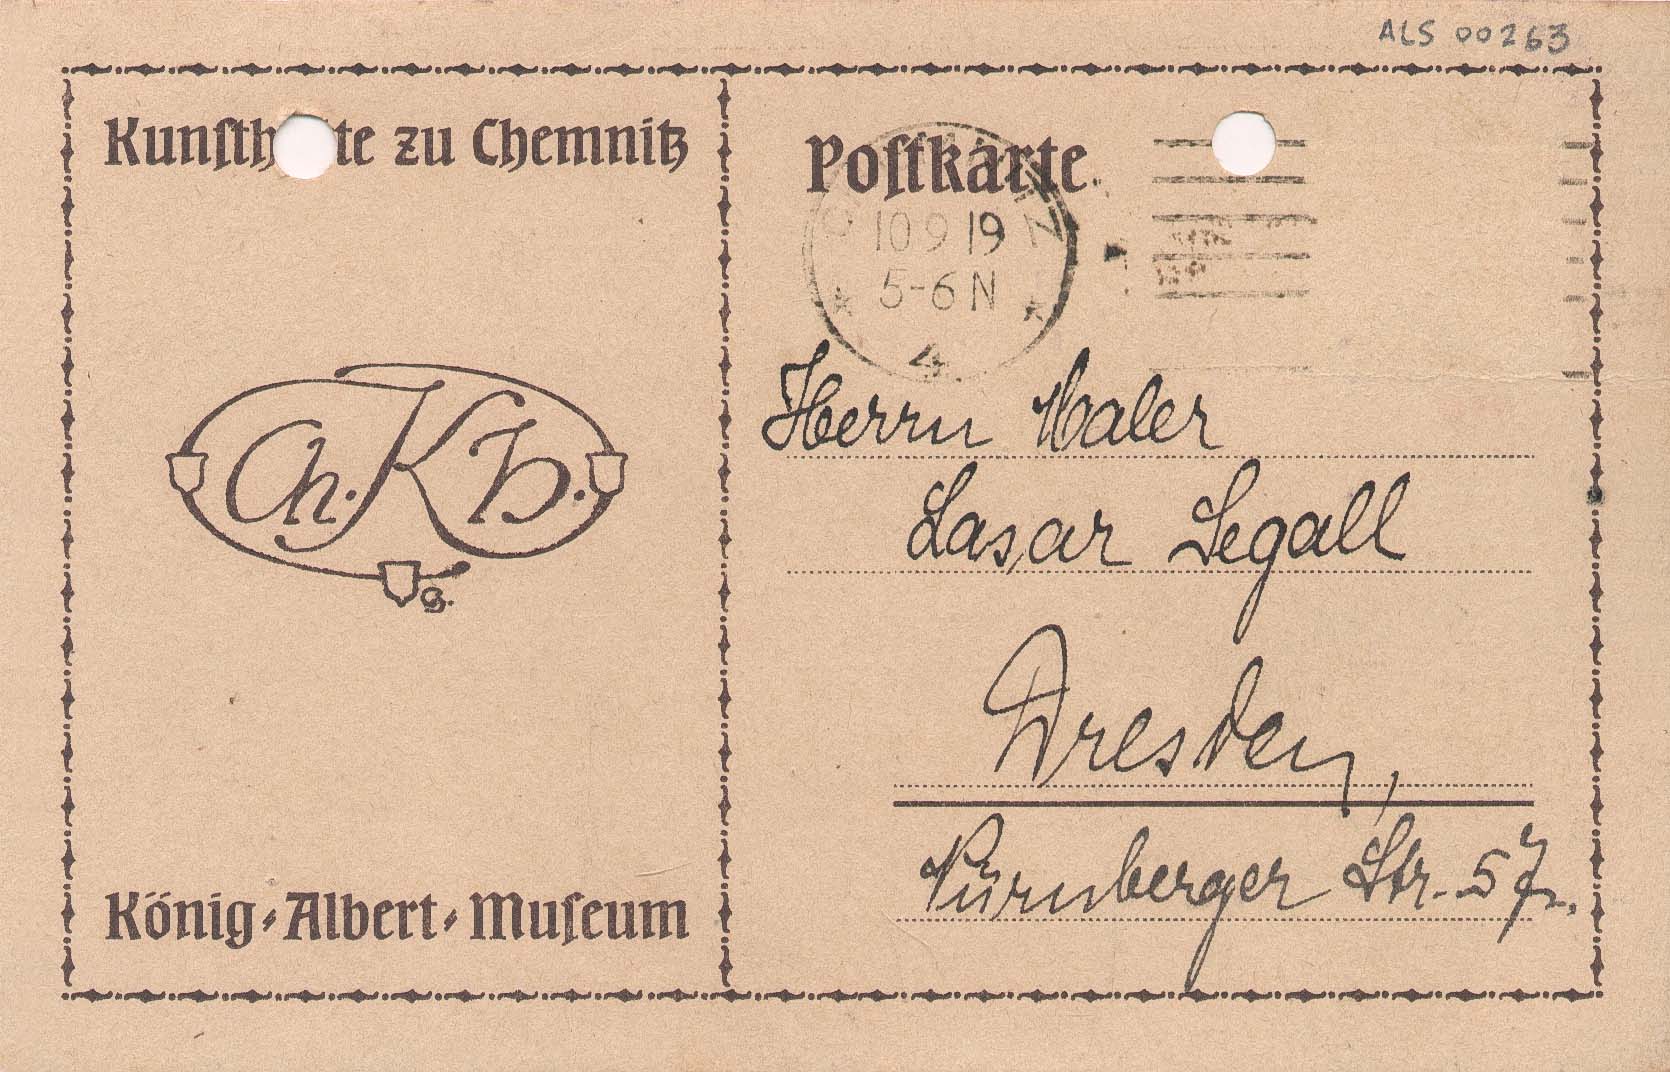 ALS 00263
Kunſth te zu Chemnitz
Poſtkarte
10 9 19
5-6 N
4
Herrn Maler
Lasar Segall
Ch. K H.
G.
Dresden,
Nürnberger Str. 57.
König-Albert-Muſeum